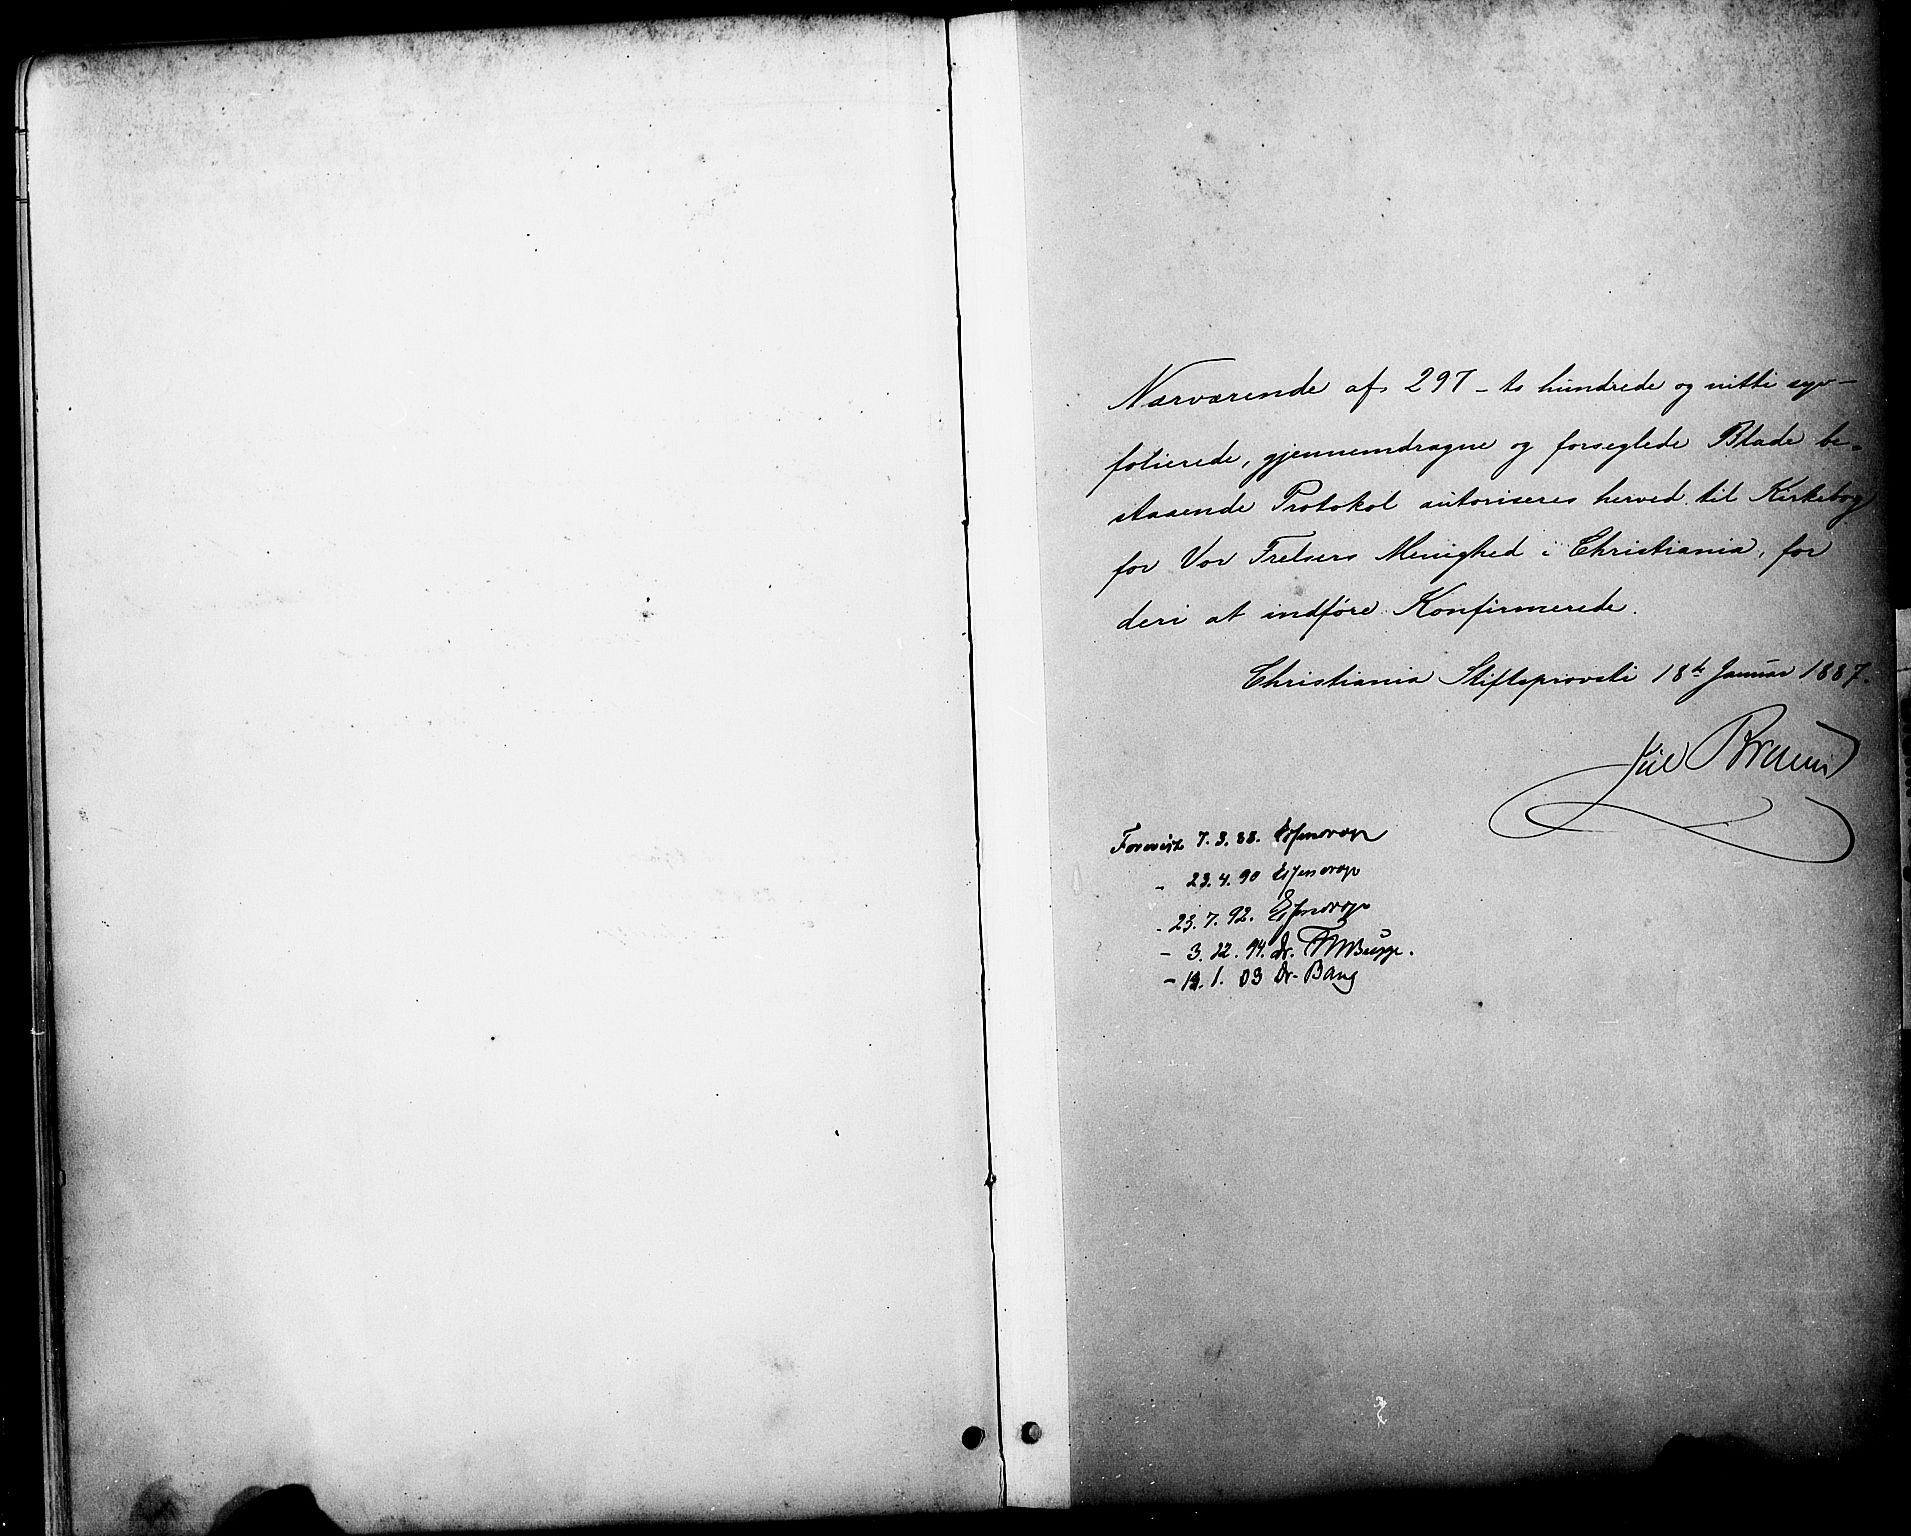 Nærværende af 297 - to hundrede og nitti syv -
folierede, gjennemdragne og forseglede Blade be-
staaende Protokol autoriseres herved til Kirkebog
for Vor Frelsers Menighed i Christiania, for
deri at indføre Konfirmerede.
Christiania Stiftsprovsti 18de Januar 1887.
Jul Bruun
Forevist 7.3.88. Essendrop
- 23.4.90 Essendrop
- 23.7.92. Essendrop
- 3.12.94. Dr. FWBugge.
- 1.03 Dr. Bang